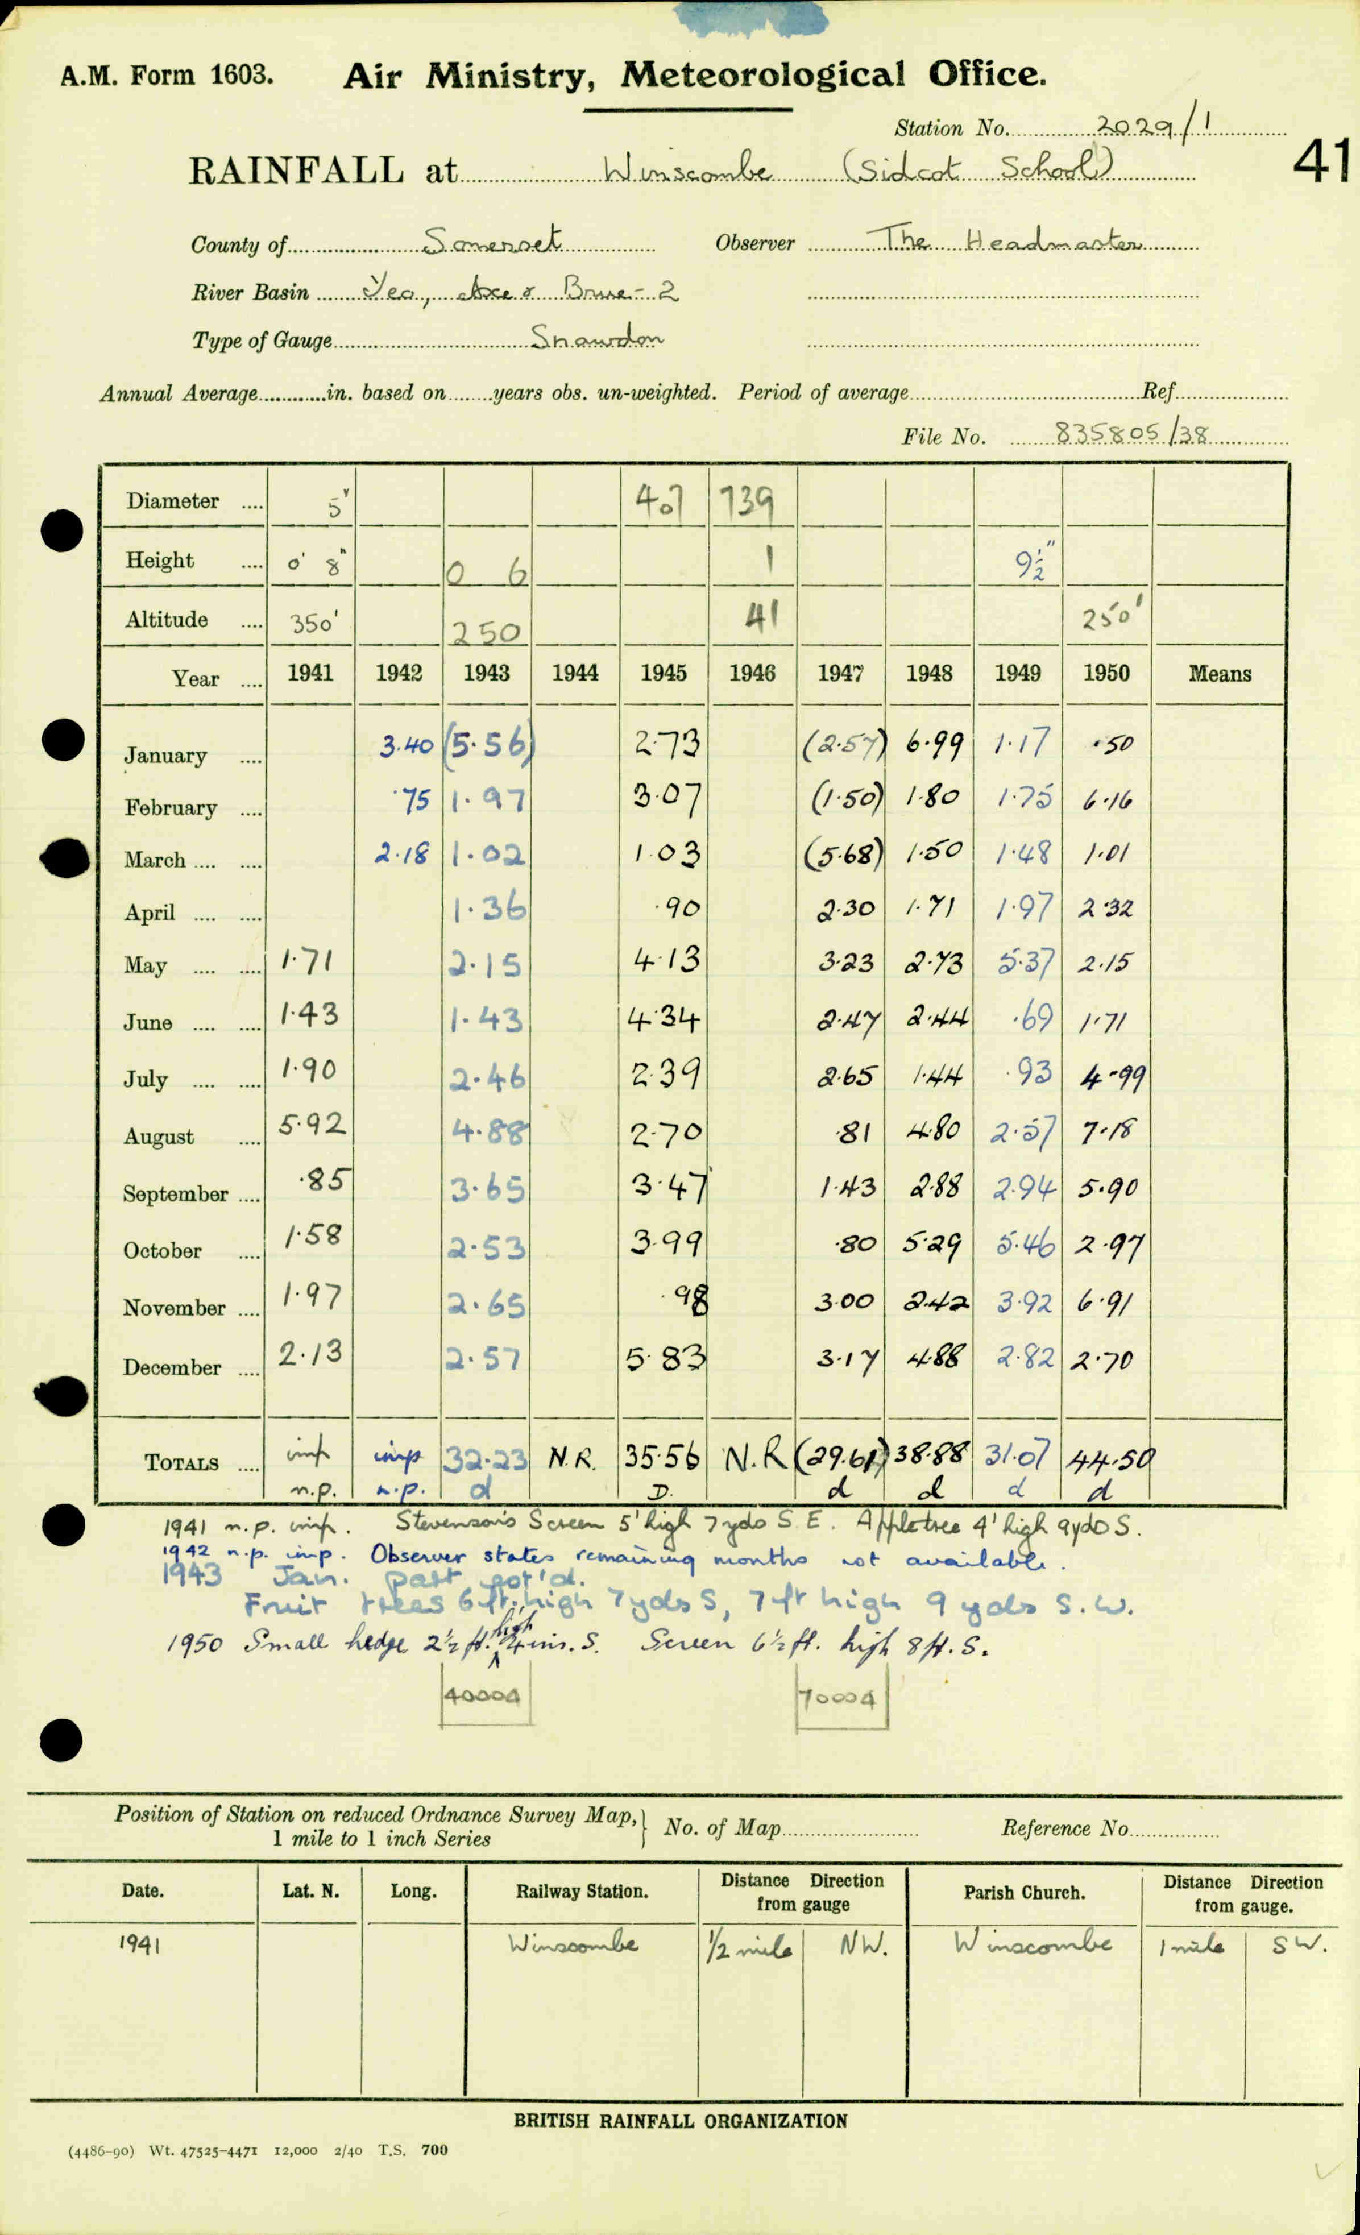 A.M. Form 1603. Air Ministry, Meteorological Office.
Station No. 2029/1
41
RAINFALL at Winscombe (Sidcot School)
County of Somerset Observer The Headmaster
River Basin Yeo, Axe & Brue - 2
Type of Gauge Snowdon
Annual Average in. based on years obs. un-weighted. Period of average Ref
File No. 835805/38
Diameter 5" 407 739
Height 0' 8" 0 6 1 9½"
Altitude 350' 250 41 250'
Year 1941 1942 1943 1944 1945 1946 1947 1948 1949 1950 Means
January 3.40 (5.56) 2.73 (2.57) 6.99 1.17 .50
February .75 1.97 3.07 (1.50) 1.80 1.75 6.16
March 2.18 1.02 1.03 (5.68) 1.50 1.48 1.01
April 1.36 .90 2.30 1.71 1.97 2.32
May 1.71 2.15 4.13 3.23 2.73 5.37 2.15
June 1.43 1.43 4.34 2.47 2.44 .69 1.71
July 1.90 2.46 2.39 2.65 1.44 .93 4.99
August 5.92 4.88 2.70 .81 4.80 2.57 7.18
September .85 3.65 3.47 1.43 2.88 2.94 5.90
October 1.58 2.53 3.99 .80 5.29 5.46 2.97
November 1.97 2.65 .98 3.00 2.42 3.92 6.91
December 2.13 2.57 5.83 3.17 4.88 2.82 2.70
TOTALS imp imp 32.23 N.R. 35.56 N.R (29.61) 38.88 31.07 44.50
n.p. n.p. d D. d d d d
1941 n.p. imp. Stevenson's Screen 5' high 7 yds S.E. Appletree 4' high 9 yds S.
1942 n.p. imp. Observer states remaining months not available.
1943 Jan. part est'd.
Fruit trees 6 ft. high 7 yds S, 7 ft high 9 yds S.W.
1950 Small hedge 2½ ft. high 4 ins. S. Screen 6½ ft. high 8 ft. S.
40004 70004
Position of Station on reduced Ordnance Survey Map, 1 mile to 1 inch Series } No. of Map Reference No.
Date. Lat. N. Long. Railway Station. Distance Direction from gauge Parish Church. Distance Direction from gauge.
1941 Winscombe ½ mile NW. Winscombe 1 mile SW.
BRITISH RAINFALL ORGANIZATION
(4486-90) Wt. 47525-4471 12,000 2/40 T.S. 700